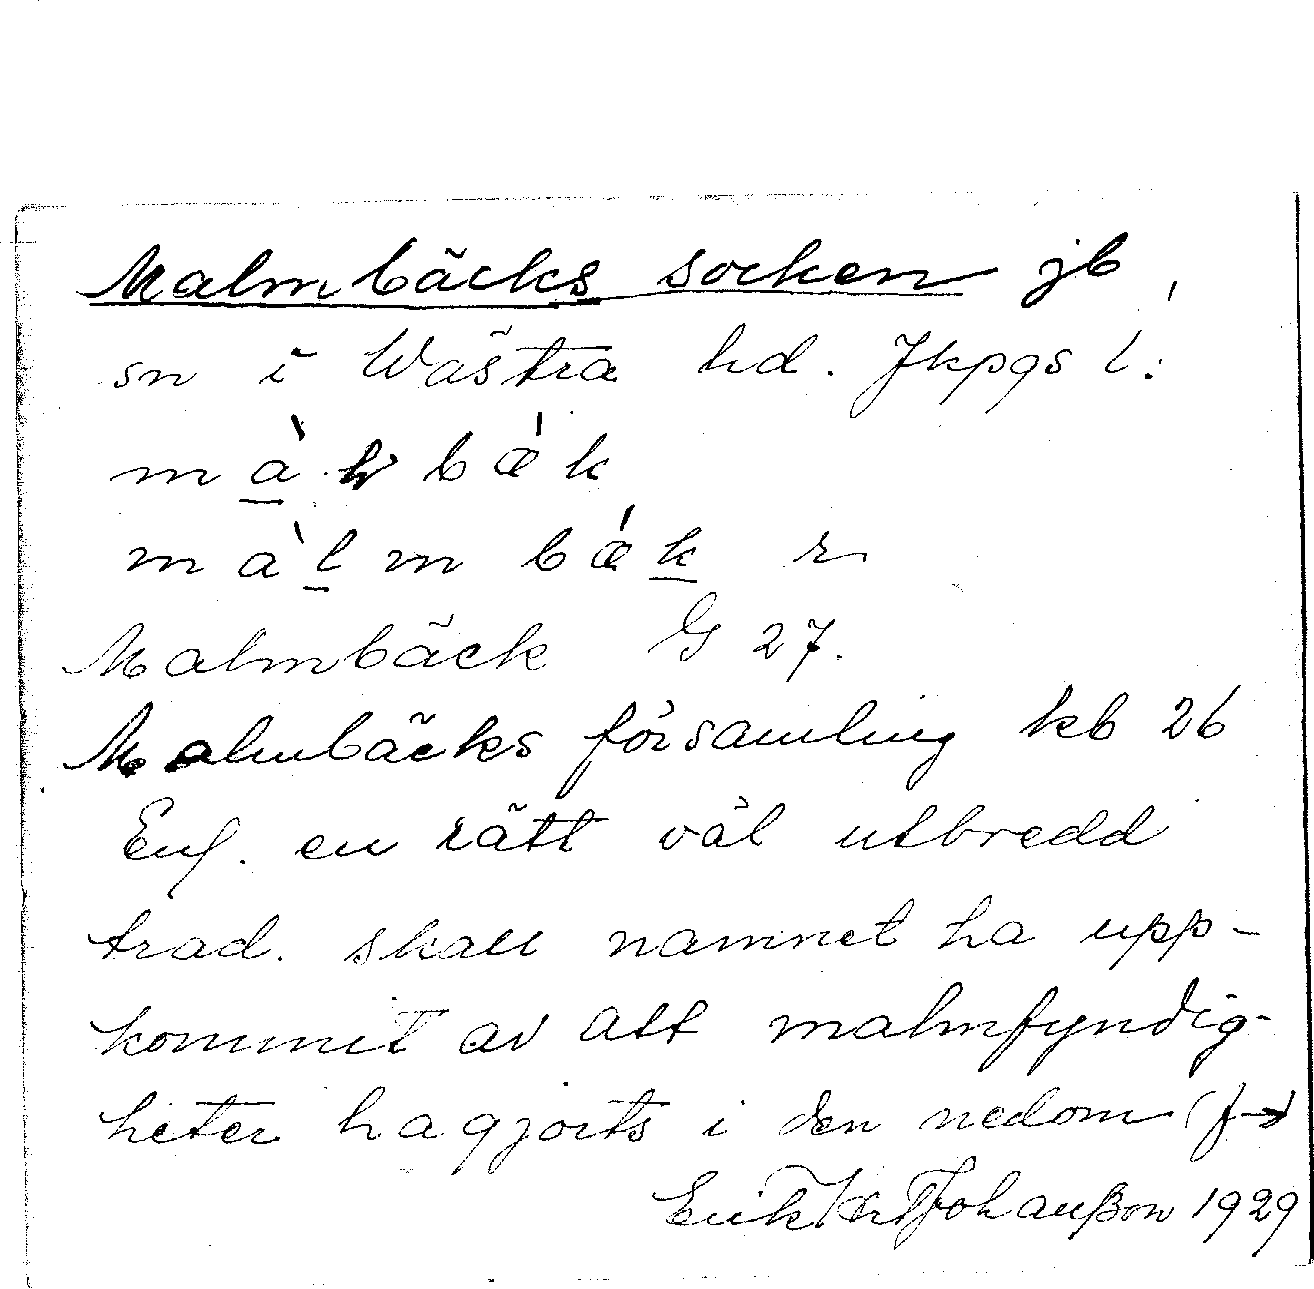 Malmbäcks socken jb
sn i Wästra hd. Jkpgs l:
målmbäck G 27.
Malmbäcks församling kb 26
Enl. en rätt väl utbredd
trad. skall namnet ha upp-
kommit av att malmfyndig-
heter ha gjorts i den nedom (f→)
Erik Johanßon 1929